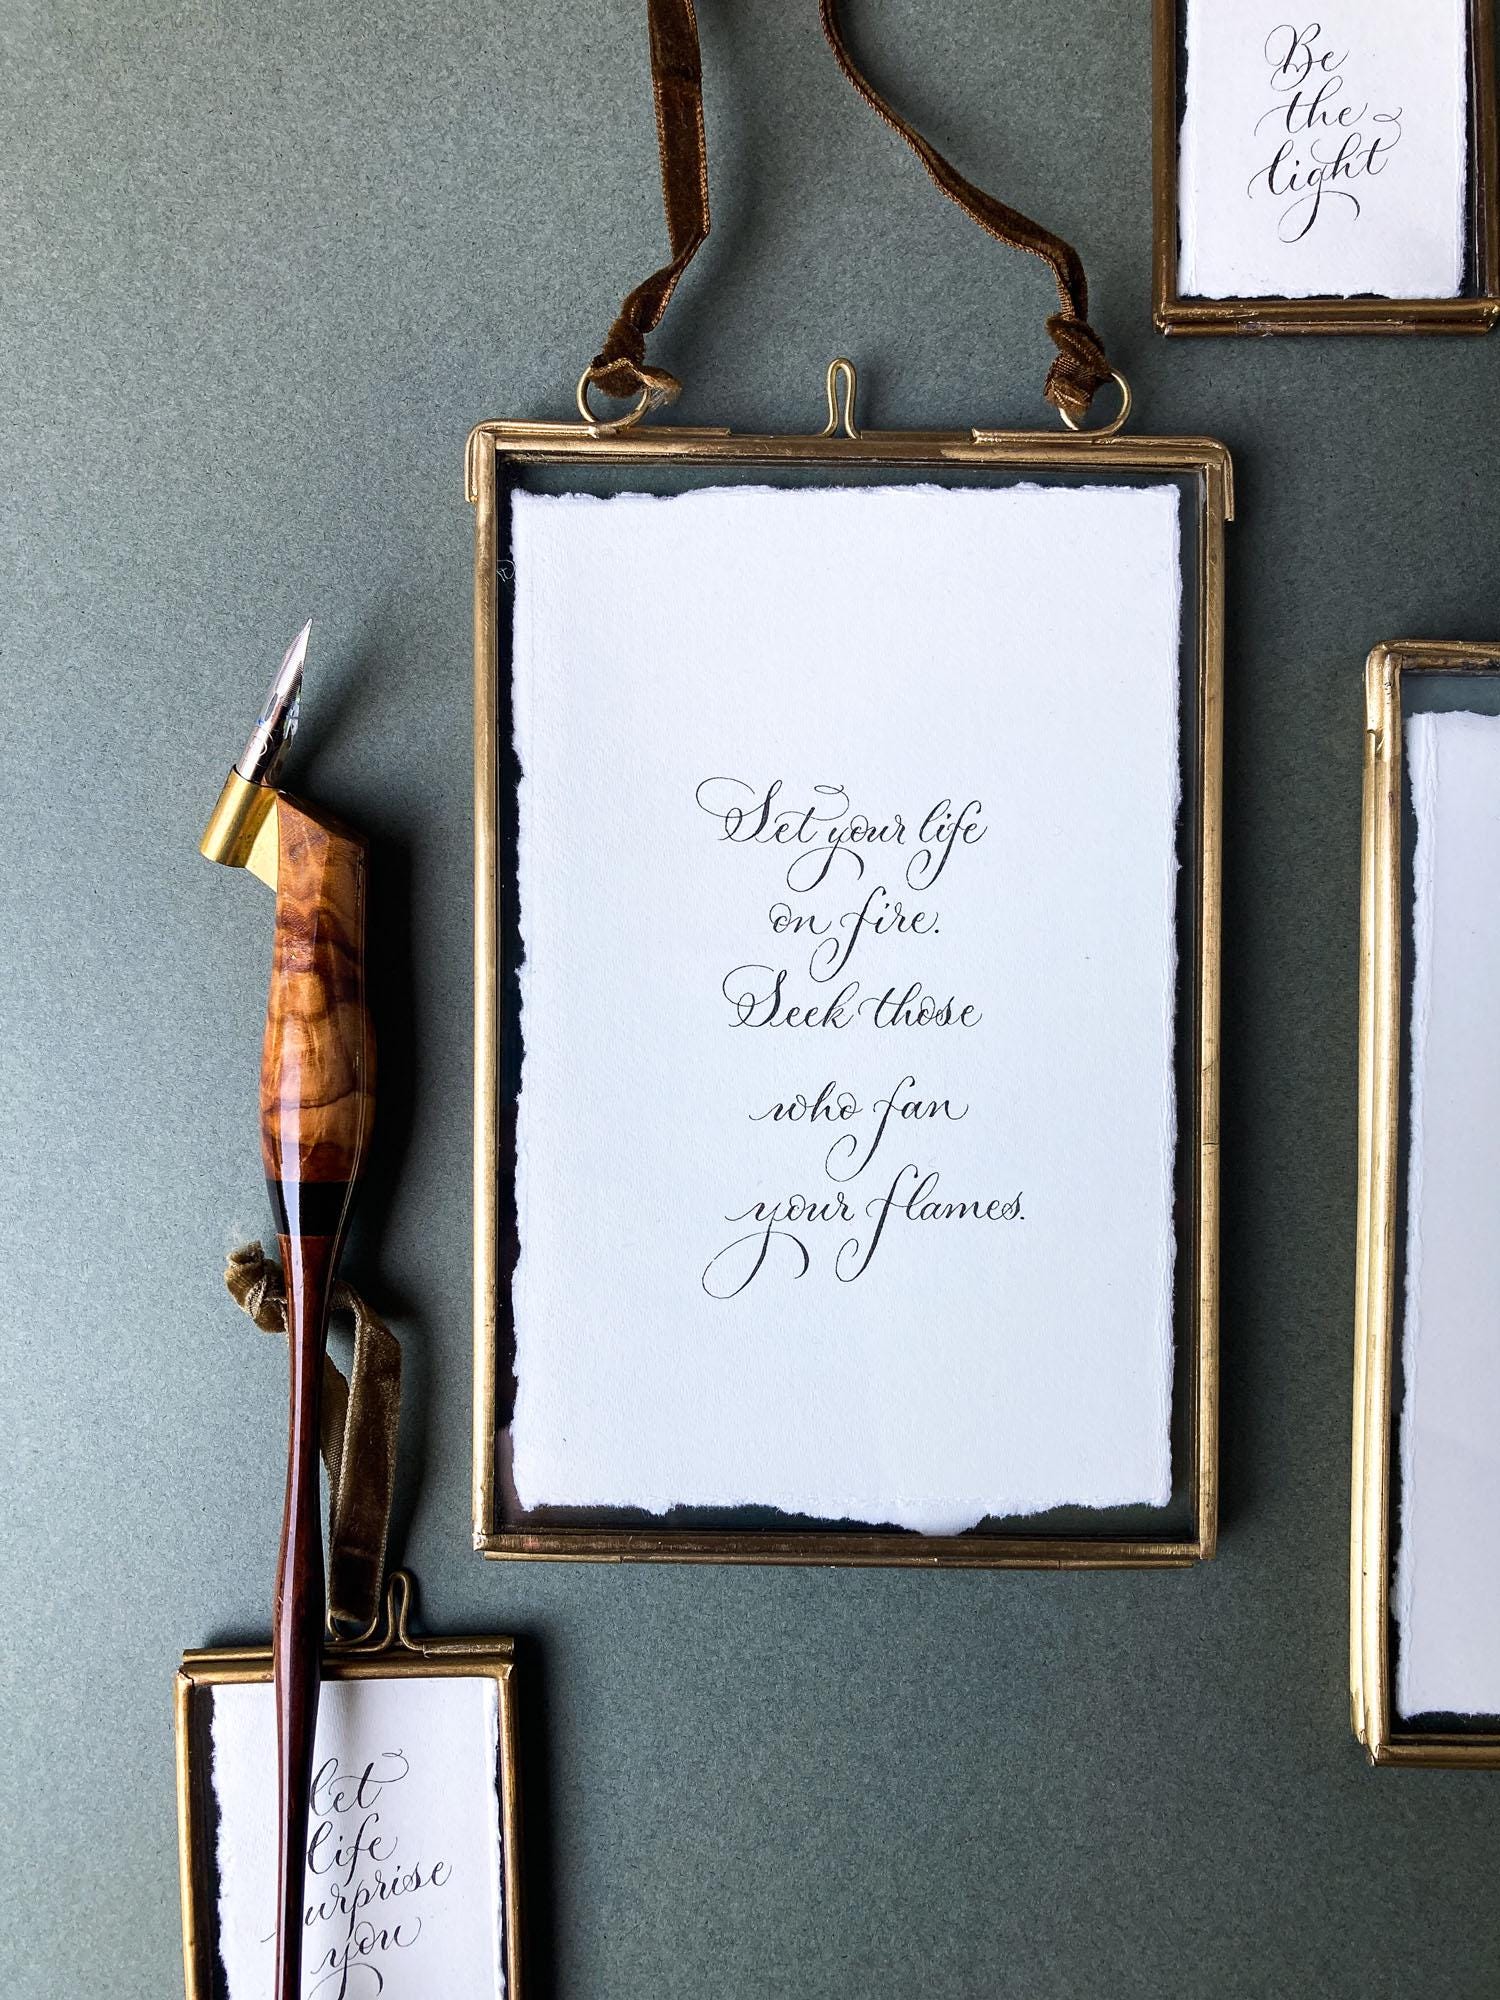 Be
the
light
Set your life
on fire.
Seek those
who fan
your flames.
let
life
urprise
you